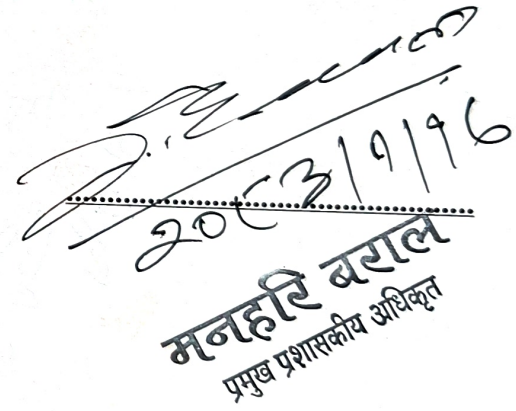 २०८३/१/१६
मनहरि बराल
प्रमुख प्रशासकीय अधिकृत